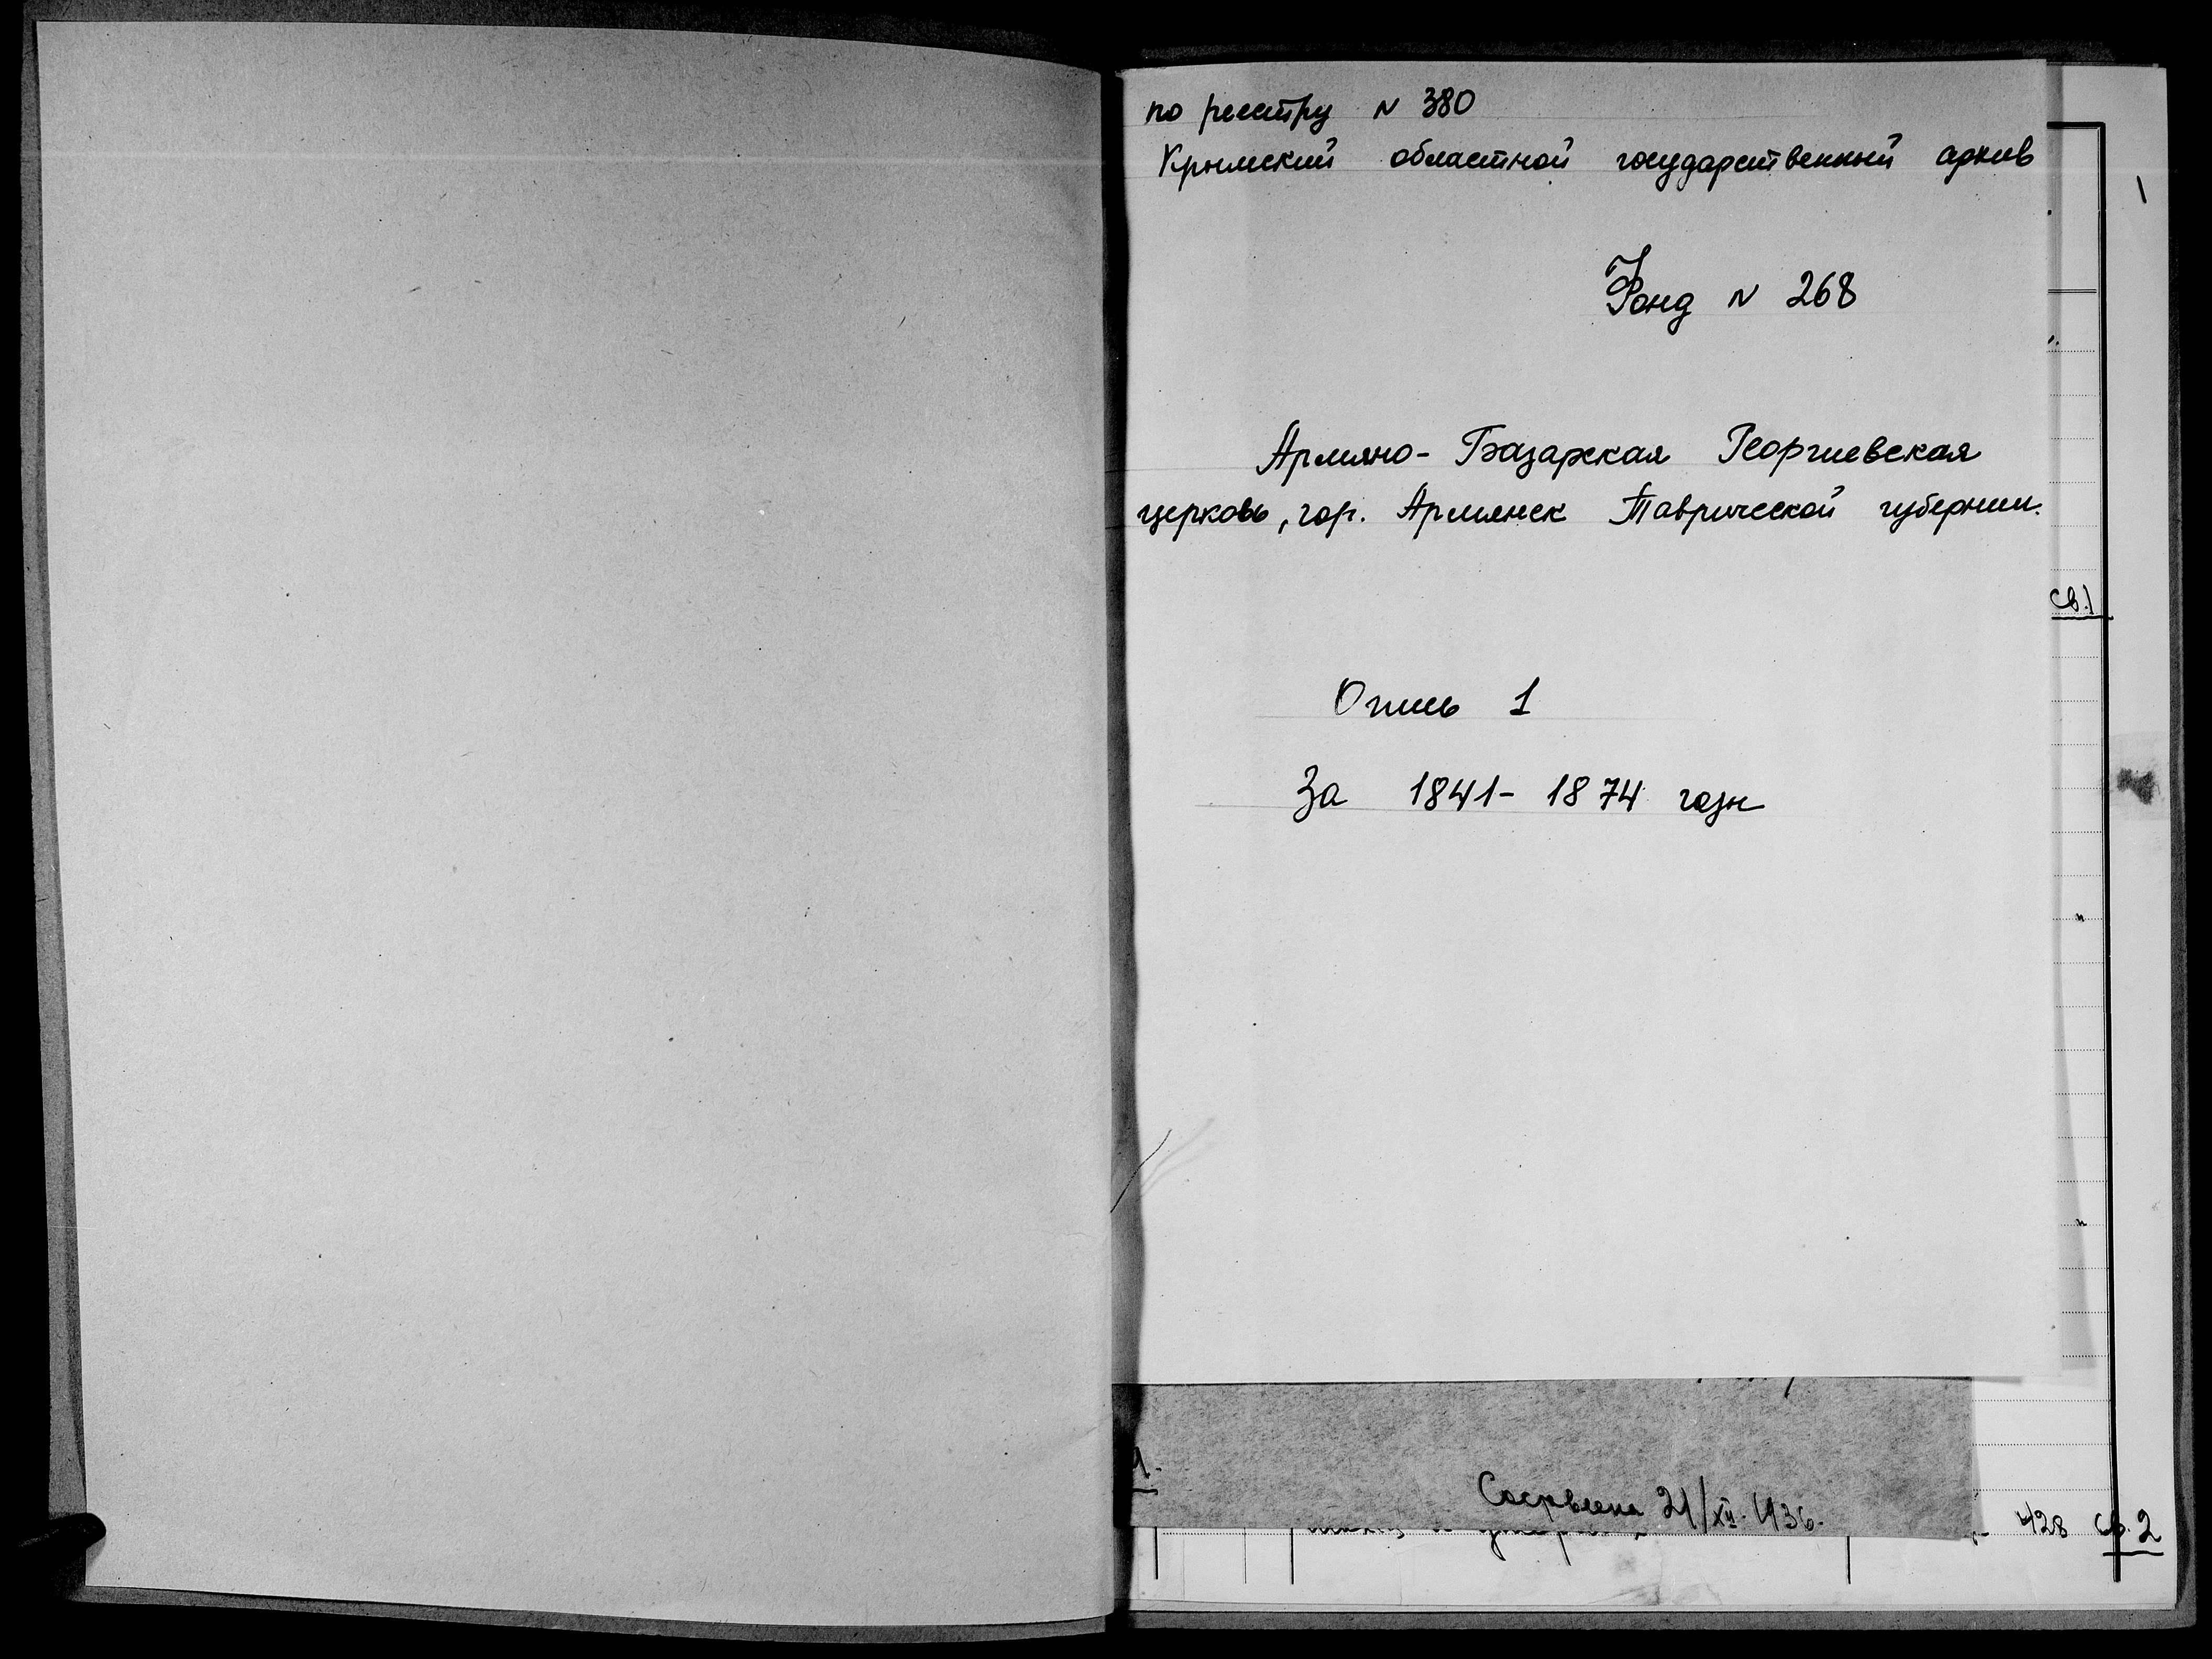 по реестру N 380
Крымский областной государственный архив
1
Фонд N 268
Армяно-Базарская Георгиевская
церковь, гор. Армянск Таврической губернии.
св.1
Опись 1
За 1841-1874 годы
"
"
1.
Составлена 21/XII.1936.
428 св. 2